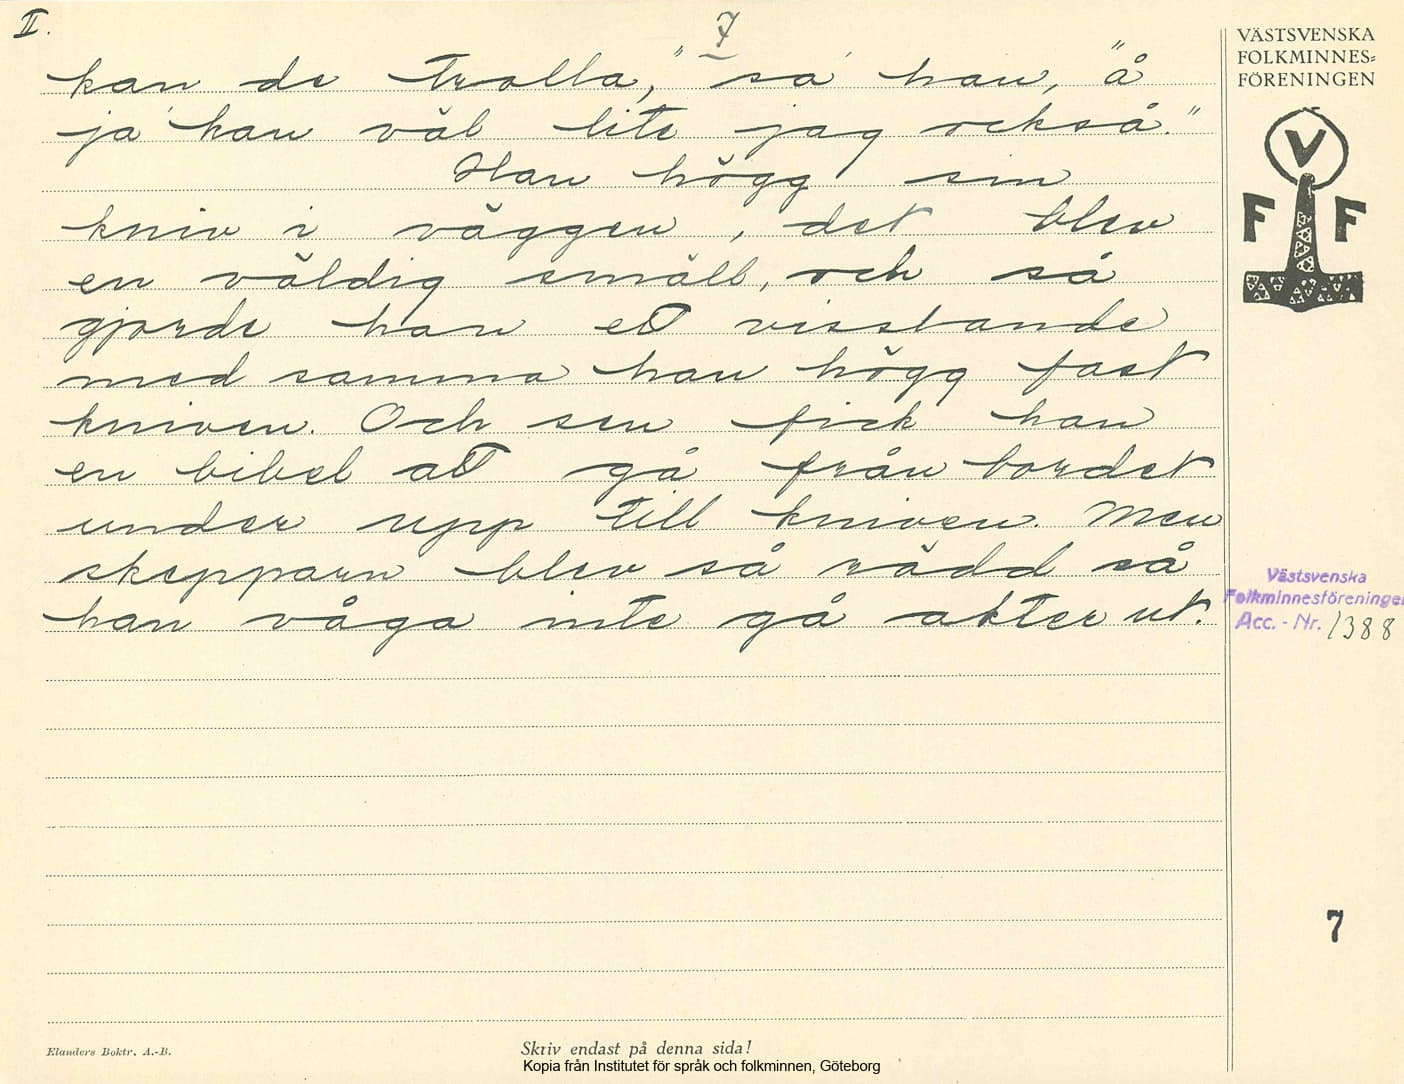 II.
7
kan de trolla," sa' han, "å
ja' kan väl lite jag också."
Han högg sin
kniv i väggen, det blev
en väldig smäll, och så
gjorde han ett visslande
med samma han högg fast
kniven. Och sen fick han
en bibel att gå från bordet
under upp till kniven. Men
skepparn blev så rädd så
han våga inte gå akter ut.
VÄSTSVENSKA
FOLKMINNES=
FÖRENINGEN
V
F F
Västsvenska
Folkminnesföreningen
Acc. - Nr. 1388
7
Elanders Boktr. A.-B.
Skriv endast på denna sida!
Kopia från Institutet för språk och folkminnen, Göteborg